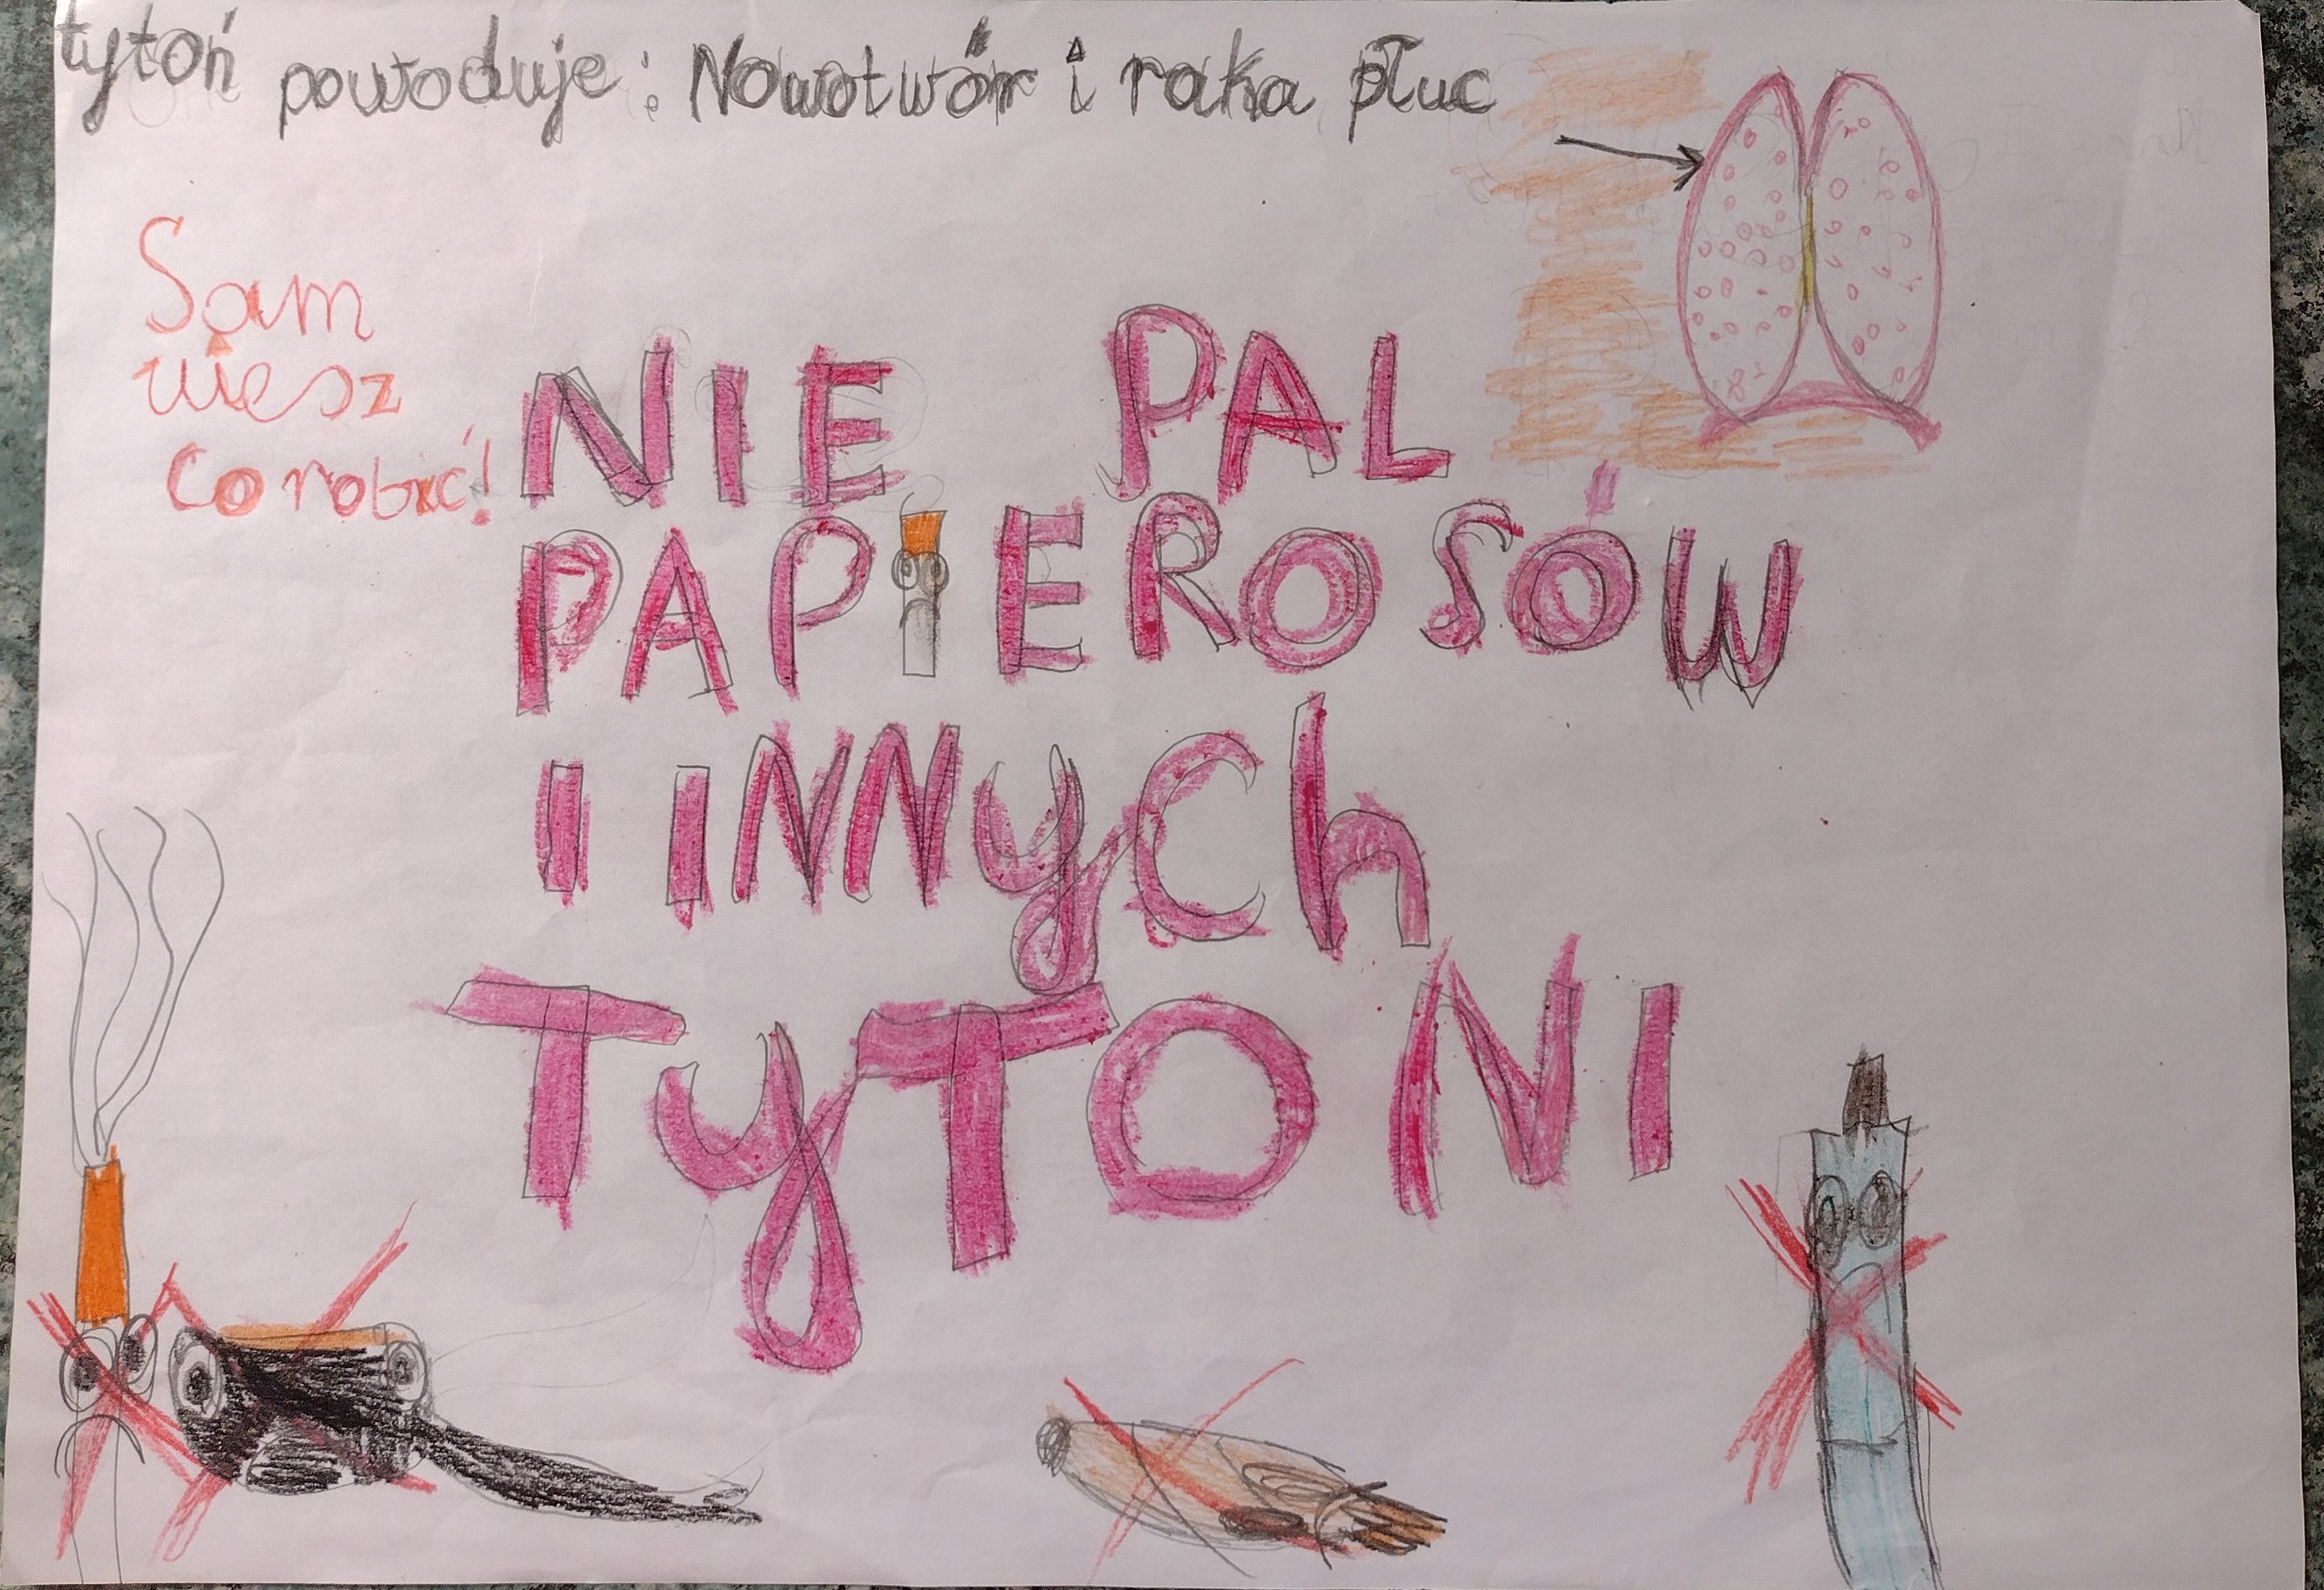 tytoń powoduje: Nowotwór i raka płuc
Sam
wiesz
co robić!
NIE PAL
PAPIEROSÓW
I INNYCh
TyTONI